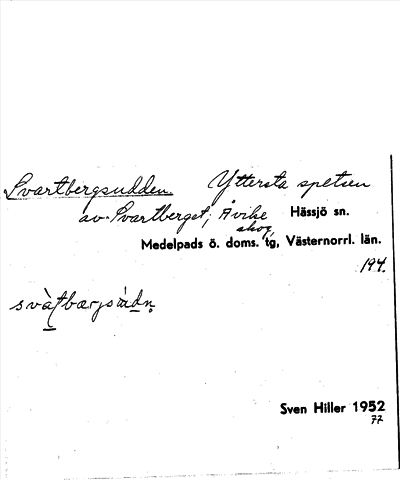 Svartbergsudden. Yttersta spetsen
av Svartberget, Åvike Hässjö sn.
skog,
Medelpads ö. doms. tg, Västernorrl. län.
194.
Sven Hiller 1952
77